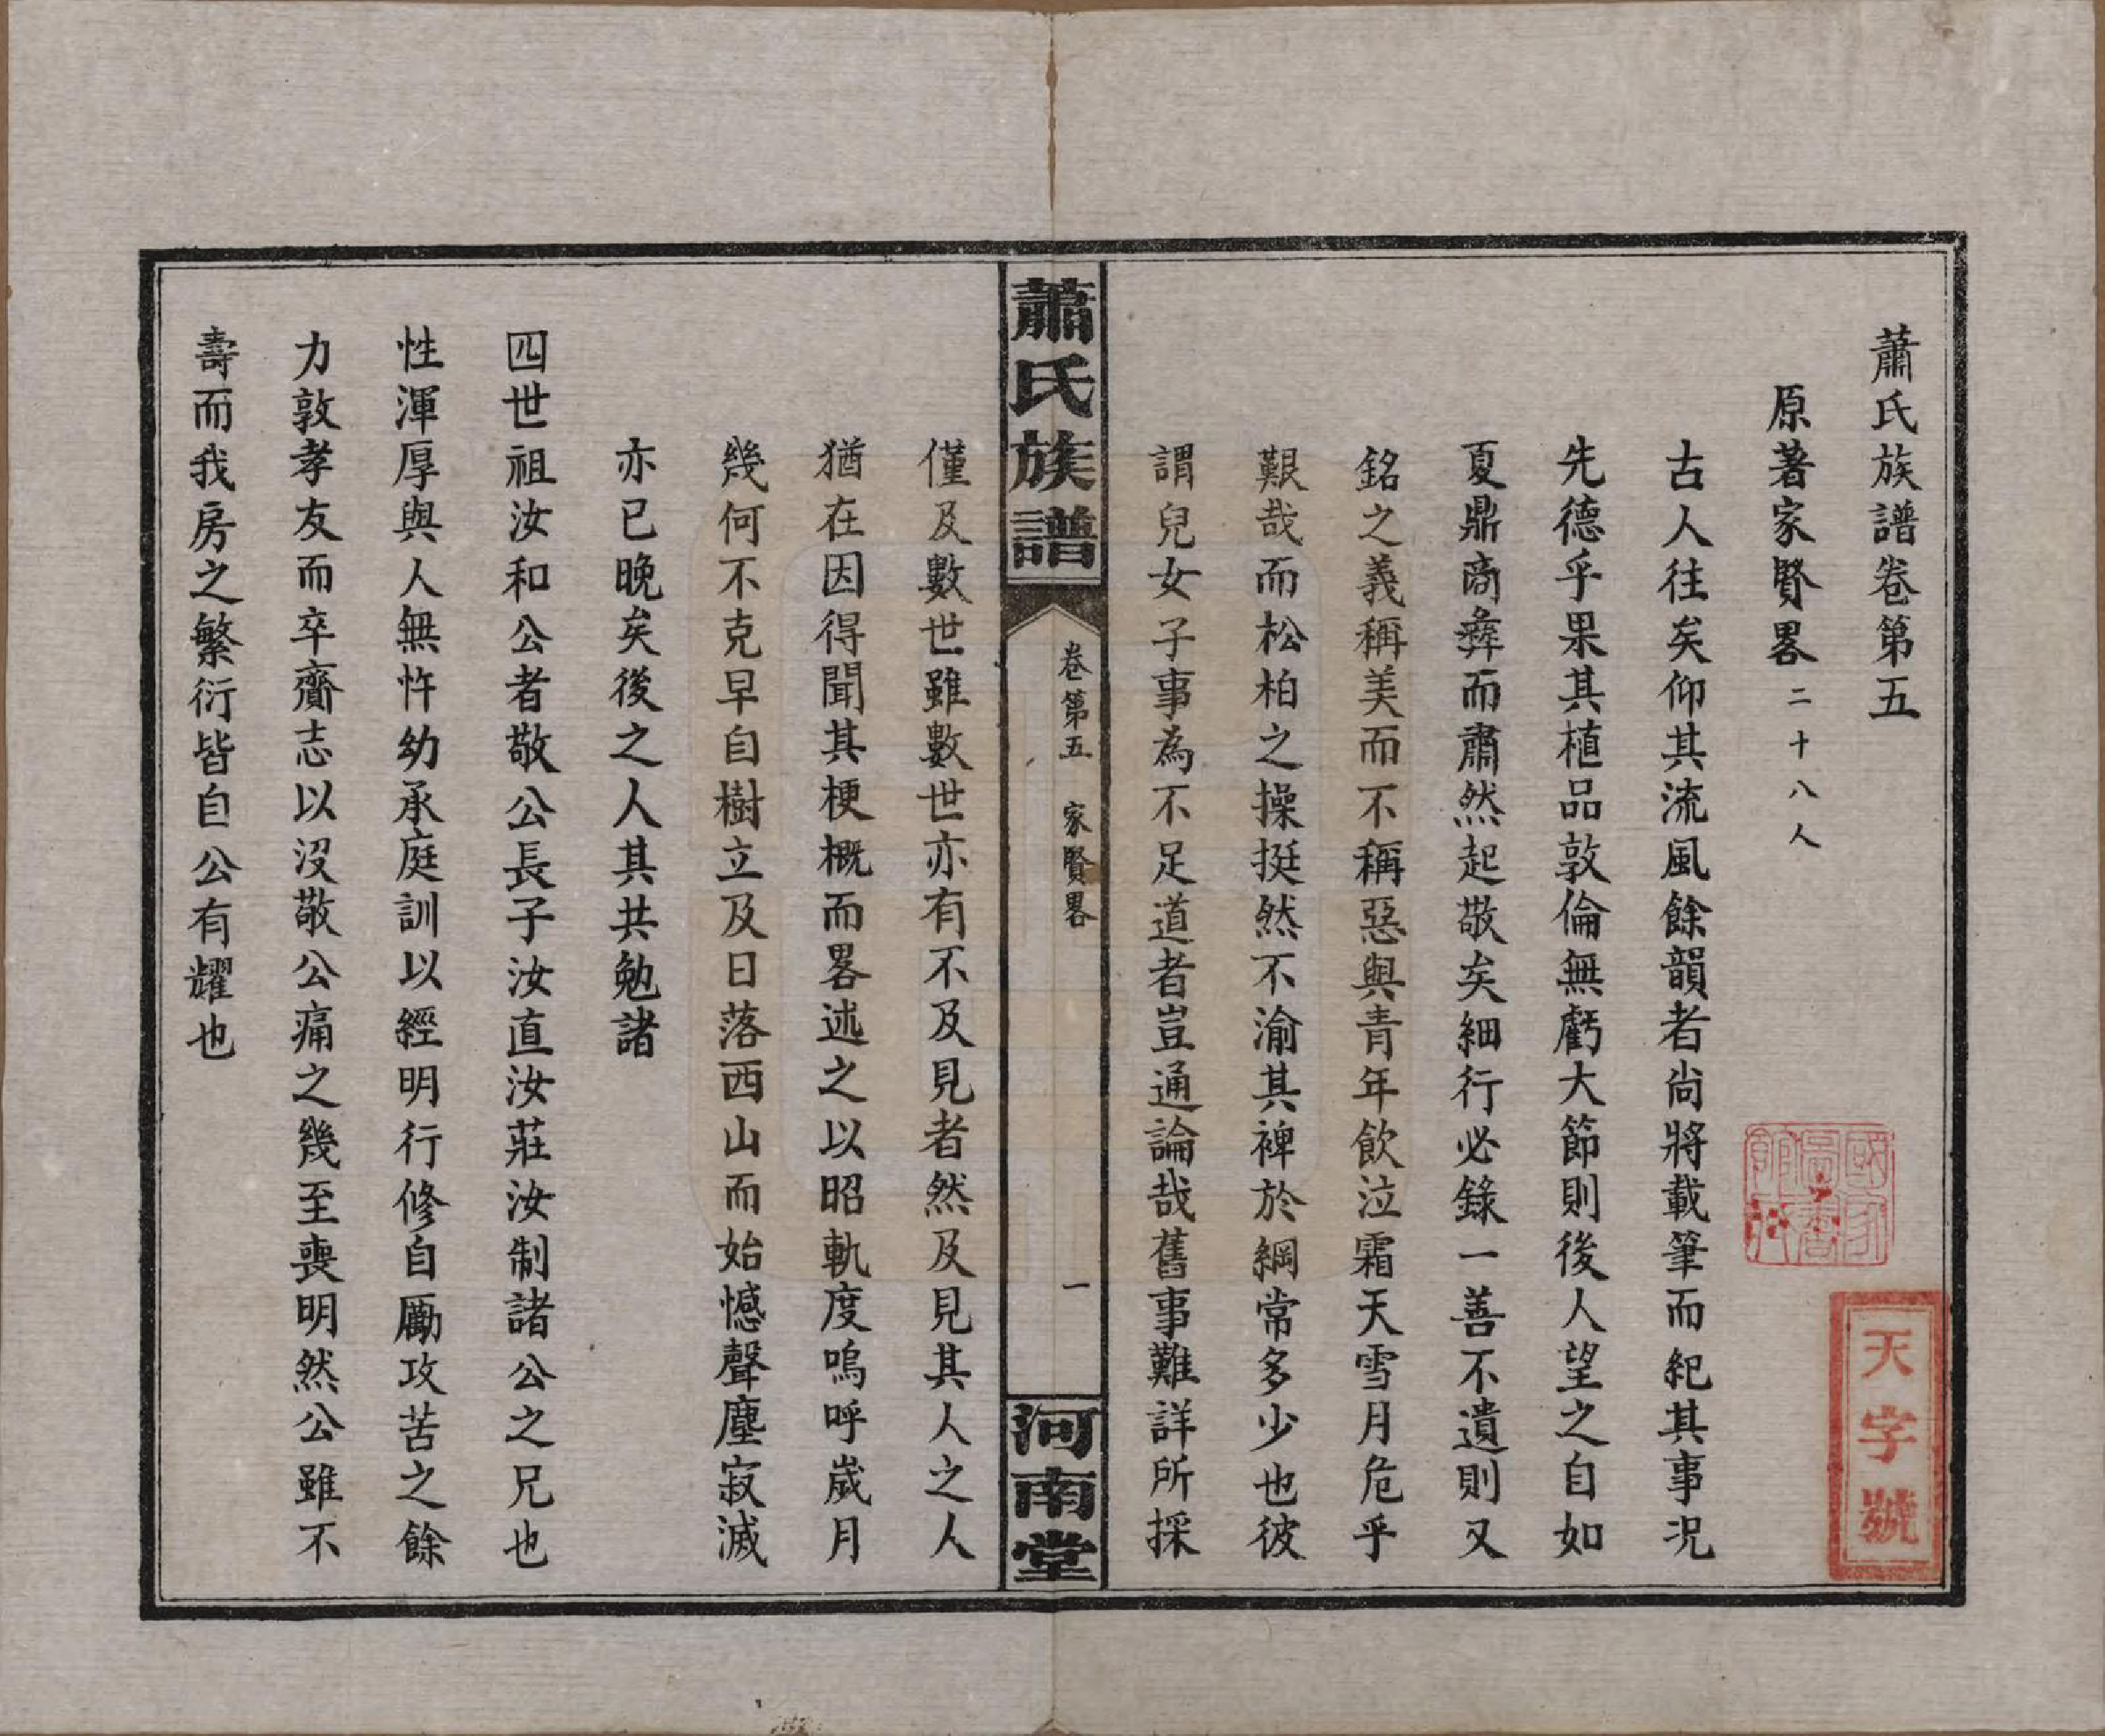 蕭氏族譜卷第五
原著家賢畧二十八人
古人往矣仰其流風餘韻者尙將載筆而紀其事况
先德乎果其植品敦倫無虧大節則後人望之自如
夏鼎商彝而肅然起敬矣細行必錄一善不遺則又
銘之義稱美而不稱惡與青年飲泣霜天雪月危乎
艱哉而松柏之操挺然不渝其裨於綱常多少也彼
謂兒女子事為不足道者豈通論哉舊事難詳所採
蕭氏族譜
卷第五 家賢畧
一
河南堂
僅及數世雖數世亦有不及見者然及見其人之人
猶在因得聞其梗概而畧述之以昭軌度嗚呼歲月
幾何不克早自樹立及日落西山而始憾聲塵寂滅
亦已晚矣後之人其共勉諸
四世祖汝和公者敬公長子汝直汝莊汝制諸公之兄也
性渾厚與人無忤幼承庭訓以經明行修自勵攻苦之餘
力敦孝友而卒齎志以沒敬公痛之幾至喪明然公雖不
壽而我房之繁衍皆自公有耀也
國家圖書館藏
天字號